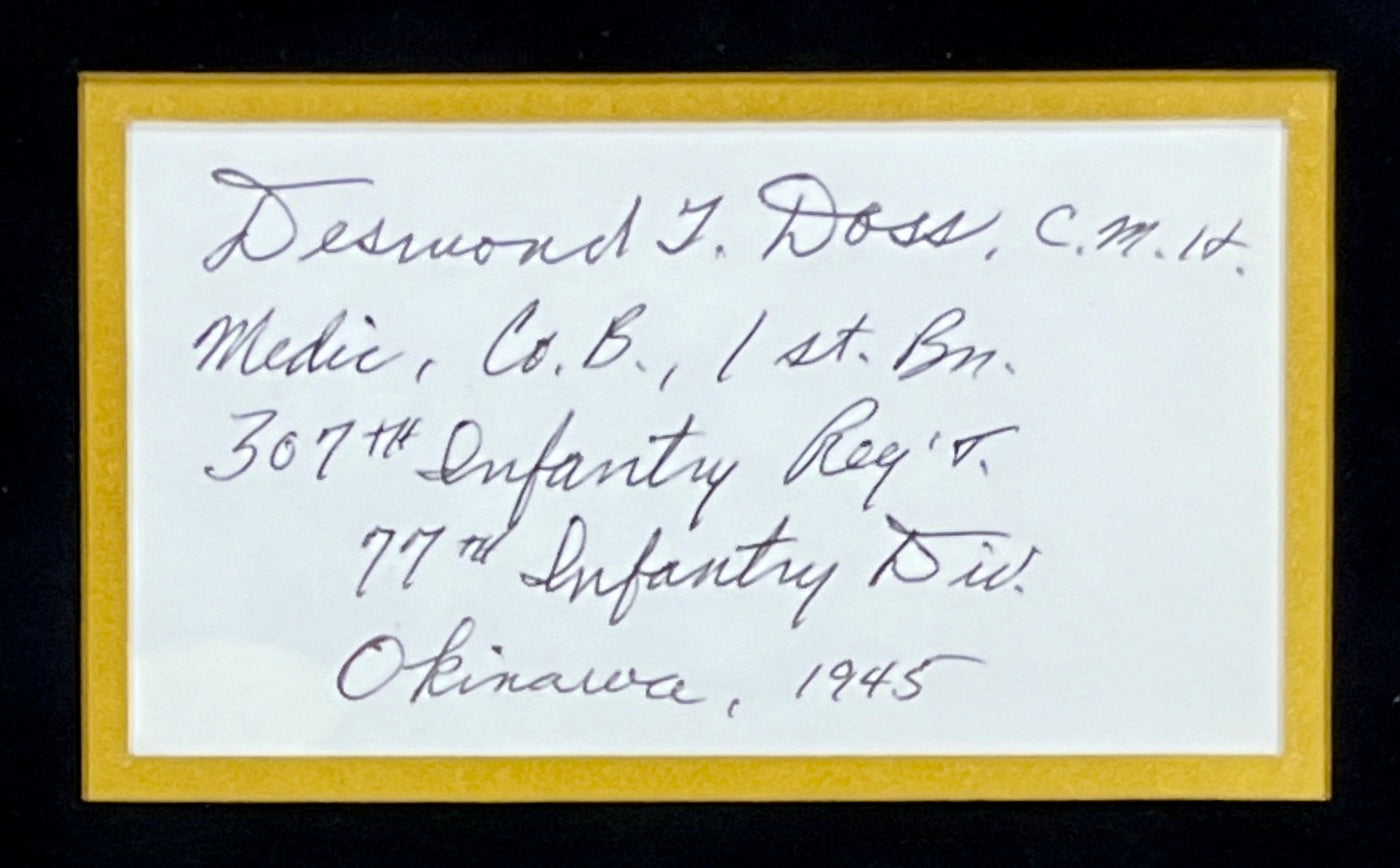 Desmond T. Doss, C.M.H.
Medic, Co. B., 1st. Bn.
307TH Infantry Reg'T.
77TH Infantry Div.
Okinawa, 1945